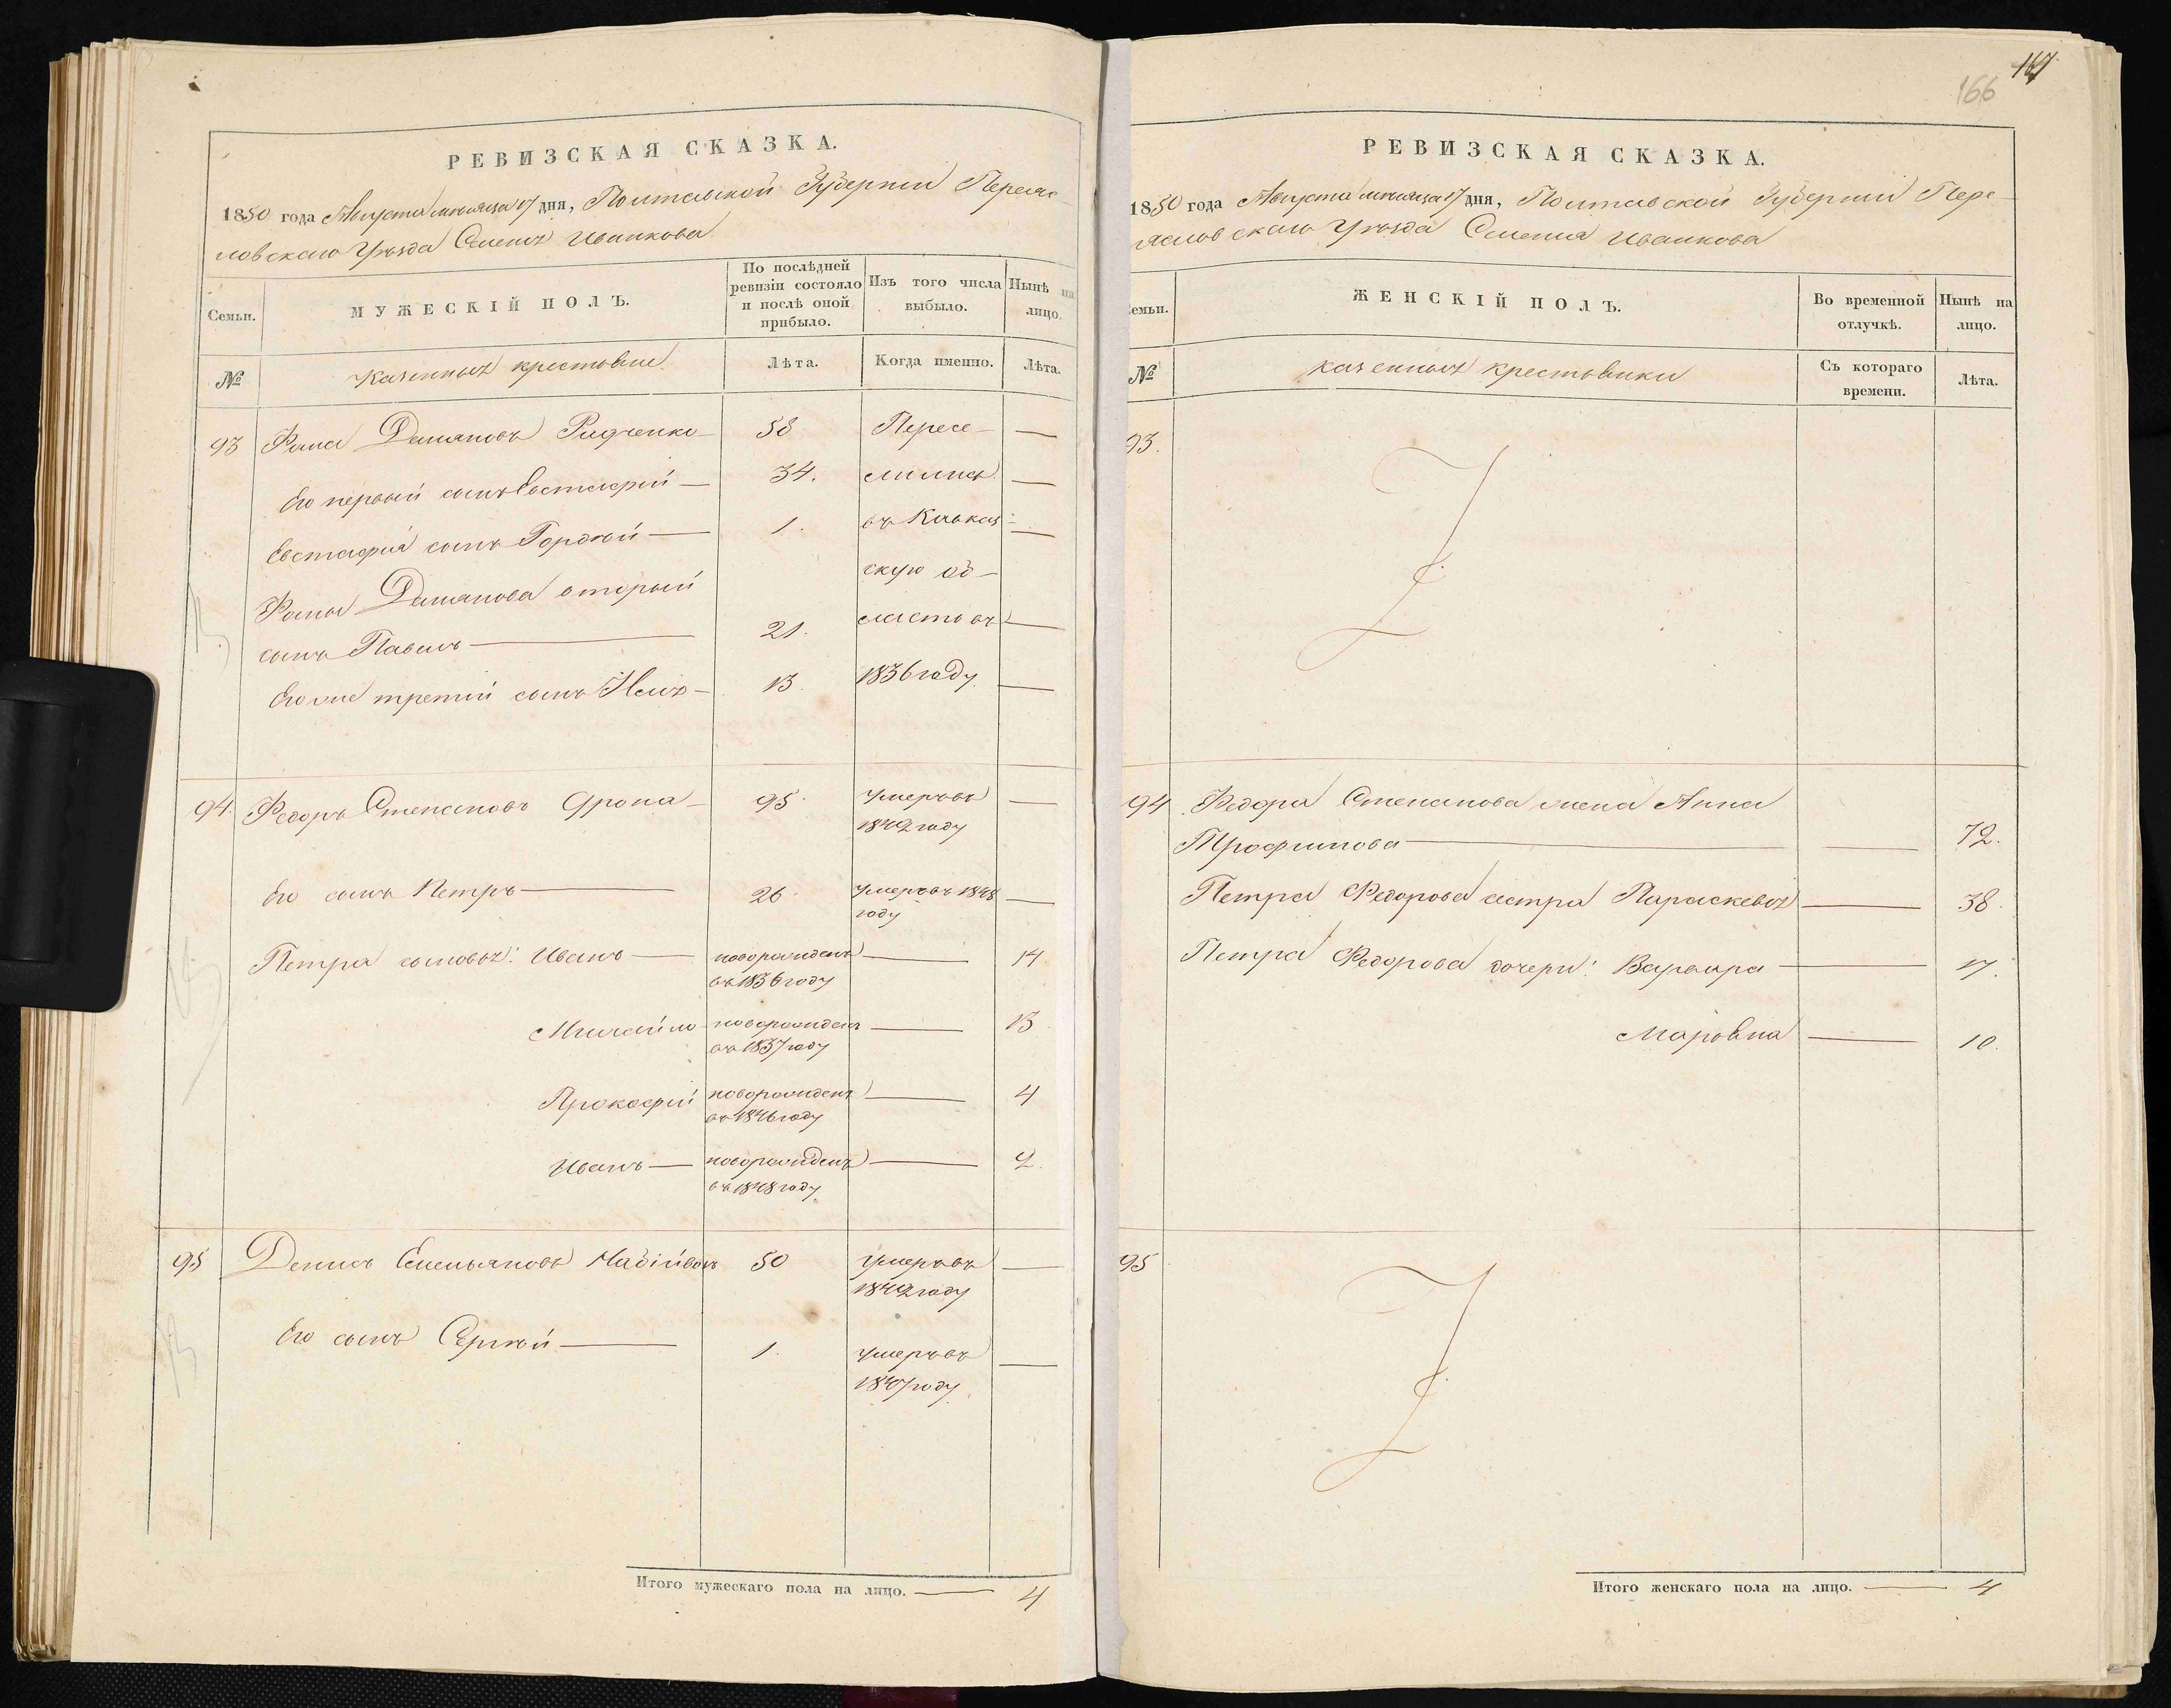 РЕВИЗСКАЯ СКАЗКА.
1850 года Августа месяца 17 дня, Полтавской Губернии Переяс-
ловскаго Уѣзда Селенія Иванкова
Семьи.
МУЖЕСКІЙ ПОЛЪ.
По послѣдней ревизіи состояло и послѣ оной прибыло.
Изъ того числа выбыло.
Нынѣ на лицо.
№
Казенныхъ крестьяне
Лѣта.
Когда именно.
Лѣта.
93 Фома Демяновъ 58 Пересе- —
Его первый сынъ Евстафій — 34. лились —
Евстафія сынъ Гордѣй — 1. въ Кавказ- —
скую об-
Фомы Демянова вторый
сынъ Павелъ — 21. ласть въ —
Его же третій сынъ — 13. 1836 году —
94. Федоръ Степановъ Ярома — 95. умеръ въ —
1842 году
Его сынъ Петръ — 26. умеръ въ 1848 —
году
Петра сыновья: Иванъ — новорожденъ — 14
въ 1836 году
Михайло — новорожденъ — 13
въ 1837 году
Прокофій новорожденъ — 4
въ 1846 году
Иванъ — новорожденъ — 2.
въ 1848 году
95 Денисъ Емельяновъ 50 умеръ въ —
1842 году
Его сынъ Сергѣй — 1. умеръ въ —
году
Итого мужескаго пола на лицо. — 4
167
166
РЕВИЗСКАЯ СКАЗКА.
1850 года Августа месяца 17 дня, Полтавской Губерніи Пере-
яслов скаго Уѣзда Селенія Иванкова
Семьи.
ЖЕНСКІЙ ПОЛЪ.
Во временной отлучкѣ.
Нынѣ на лицо.
№
казенныхъ крестьянки
Съ котораго времени.
Лѣта.
93.
94. Федора Степанова жена Анна
Трофимова — — 72.
Петра Федорова сестра Параскевья — 38.
Петра Федорова дочери: Варвара — 17.
Марьяна — 10.
95
Итого женскаго пола на лицо. — 4